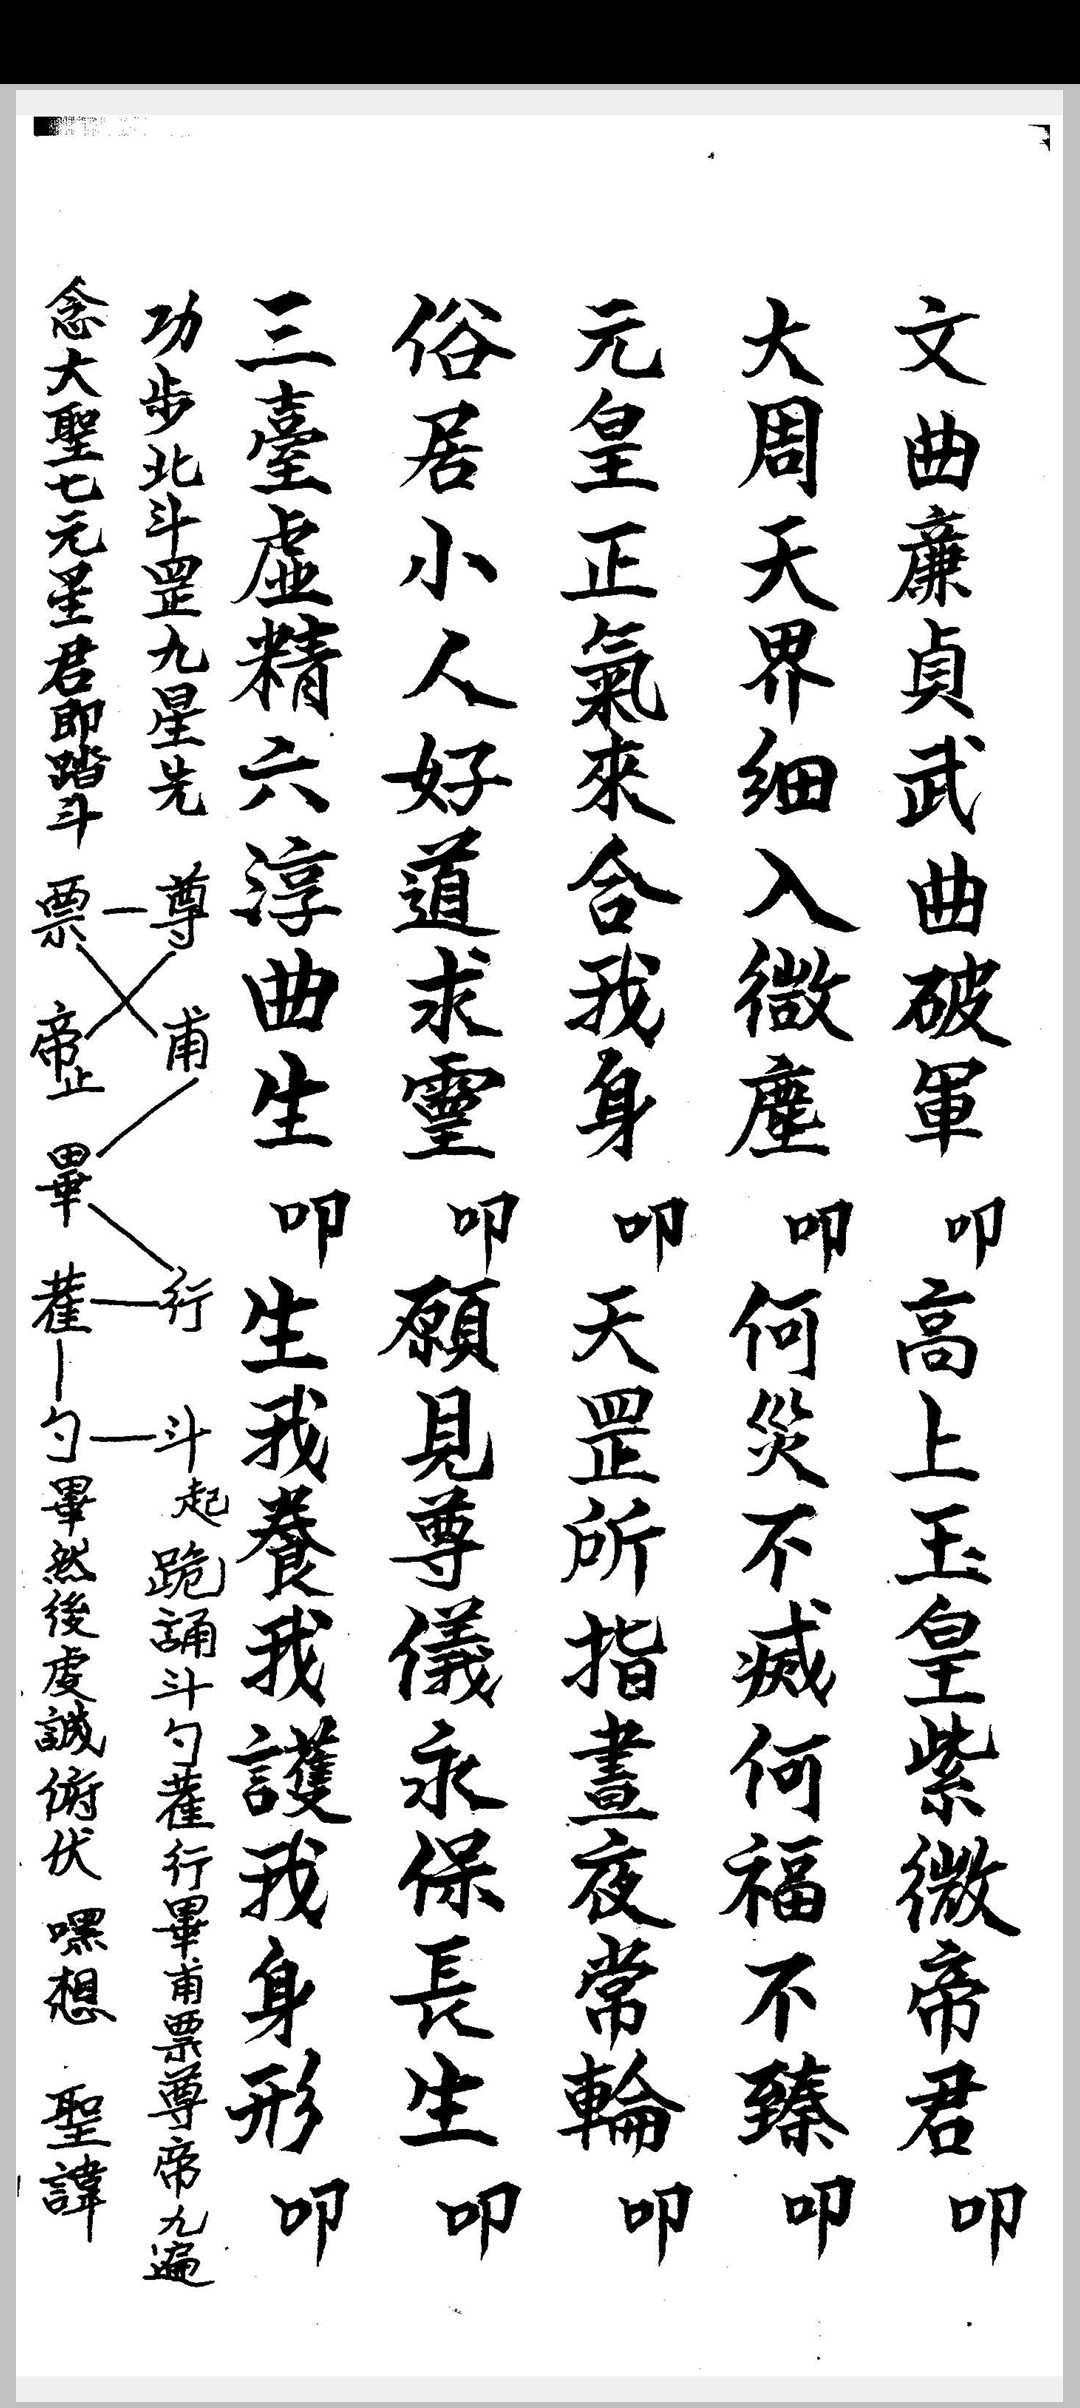 文曲廉貞武曲破軍 叩 高上玉皇紫微帝君 叩
大周天界細入微塵 叩 何災不滅何福不臻 叩
元皇正氣來合我身 叩 天罡所指晝夜常輪 叩
俗居小人好道求靈 叩 願見尊儀永保長生 叩
三臺虛精六淳曲生 叩 生我養我護我身形 叩
功步北斗罡九星先 尊 甫 行 斗 起 跪誦斗勺雚行畢甫票尊帝九遍
念大聖七元星君即踏斗 票 帝 止 畢 雚 勺 畢然後虔誠俯伏 嘿想 聖諱